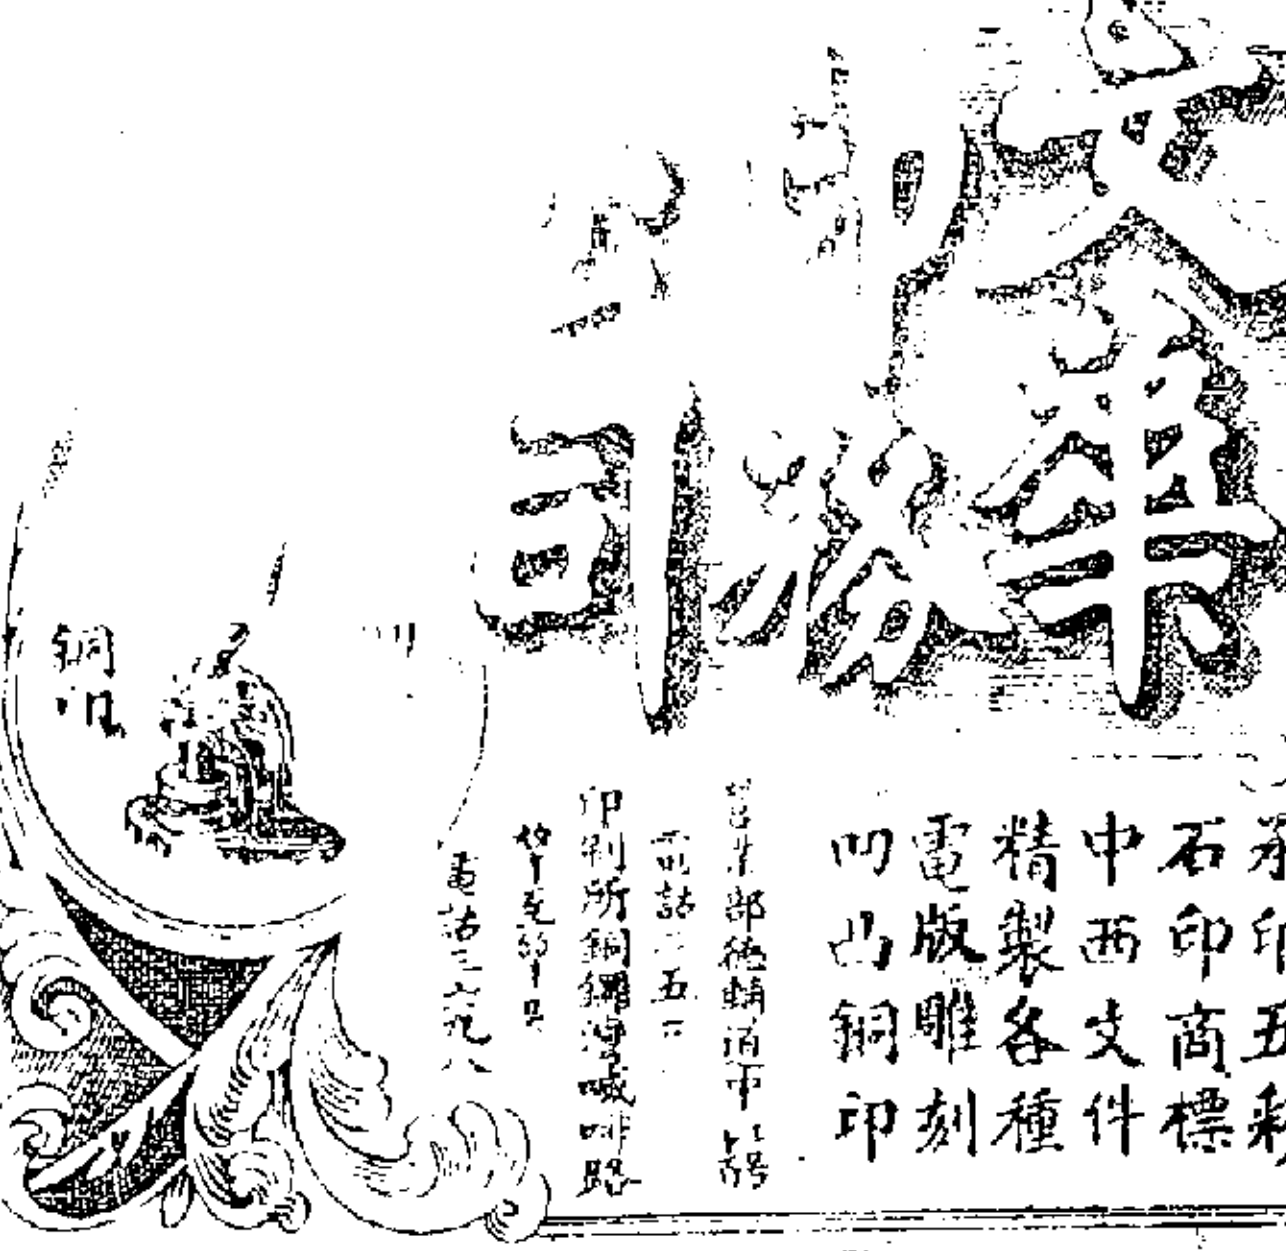 文華
印務
公司
承印五彩
石印商標
中西文件
精製各種
電版雕刻
凹凸銅印
營業部德輔道中 號
電話 五
印刷所銅鑼灣威菲路
電話二六九八
銅